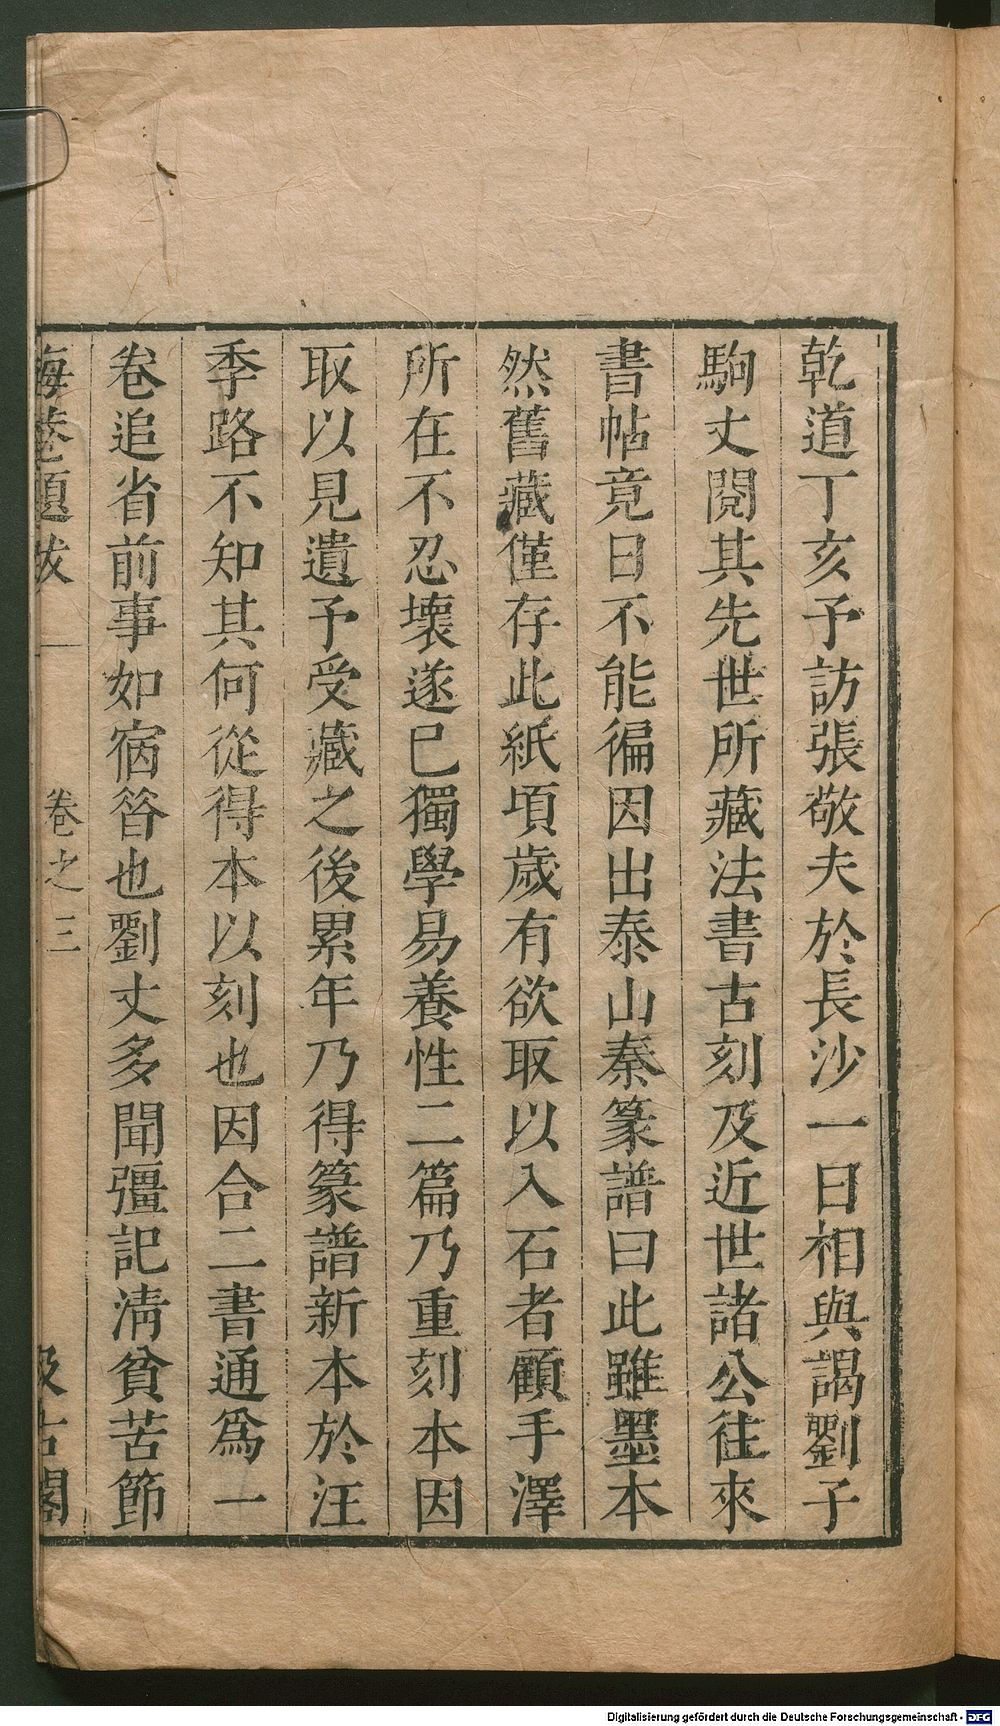 乾道丁亥予訪張敬夫於長沙一日相與謁劉子
駒丈閱其先世所藏法書古刻及近世諸公往來
書帖竟日不能徧因出泰山秦篆譜曰此雖墨本
然舊藏僅存此紙頃歲有欲取以入石者顧手澤
所在不忍壞遂已獨學易養性二篇乃重刻本因
取以見遺予受藏之後累年乃得篆譜新本於汪
季路不知其何從得本以刻也因合二書通為一
卷追省前事如宿昝也劉丈多聞彊記淸貧苦節
海菴題跋 卷之三 汲古閣
Digitalisierung gefördert durch die Deutsche Forschungsgemeinschaft - DFG